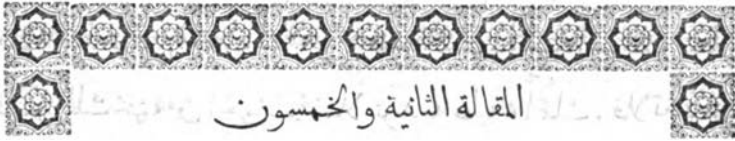 المقالة الثانية والخمسون